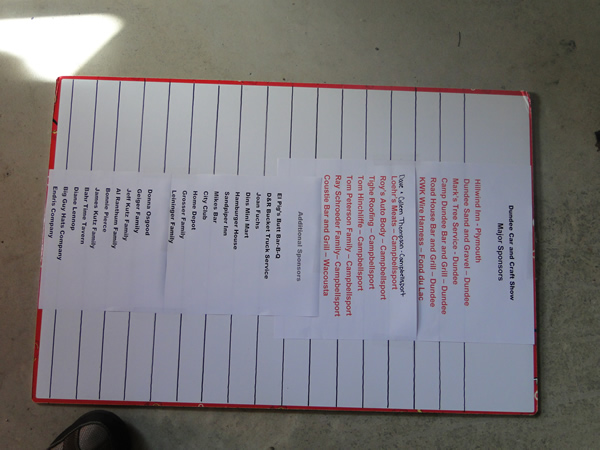 Dundee Car and Craft Show
Major Sponsors
Hillwind Inn - Plymouth
Dundee Sand and Gravel – Dundee
Mark's Tree Service - Dundee
Camp Dundee Bar and Grill – Dundee
Road House Bar and Grill – Dundee
KWK Wire Harness – Fond du Lac
Thompson - Campbellsport
Loehr's Meats – Campbellsport
Roy's Auto Body – Campbellsport
Tighe Roofing – Campbellsport
Tom Hinchliffe – Campbellsport
Tom Peterson Family – Campbellsport
Ray Schroeder Family – Campbellsport
Coustie Bar and Grill – Wacousta
Additional Sponsors
El Pig's Butt Bar-B-Q
D&R Bucket Truck Service
Joan Fuchs
Dins Mini Mart
Hamburger House
Sandpiper Inn
Mikes Bar
City Club
Home Depot
Grosser Family
Leininger Family
Donna Osgood
Geiger Family
Jeff Kutz Family
Al Ranthum Family
Bonnie Pierce
James Kutz Family
Bahr Time Tavern
Diane Lennop
Big Guy Hats Company
Endris Company